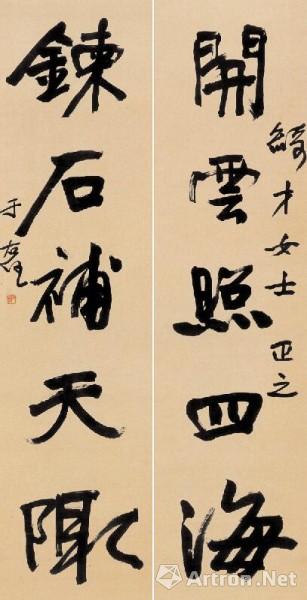 開雲照四海
綺才女士 正之
鍊石補天陬
于右任
Artron.Net